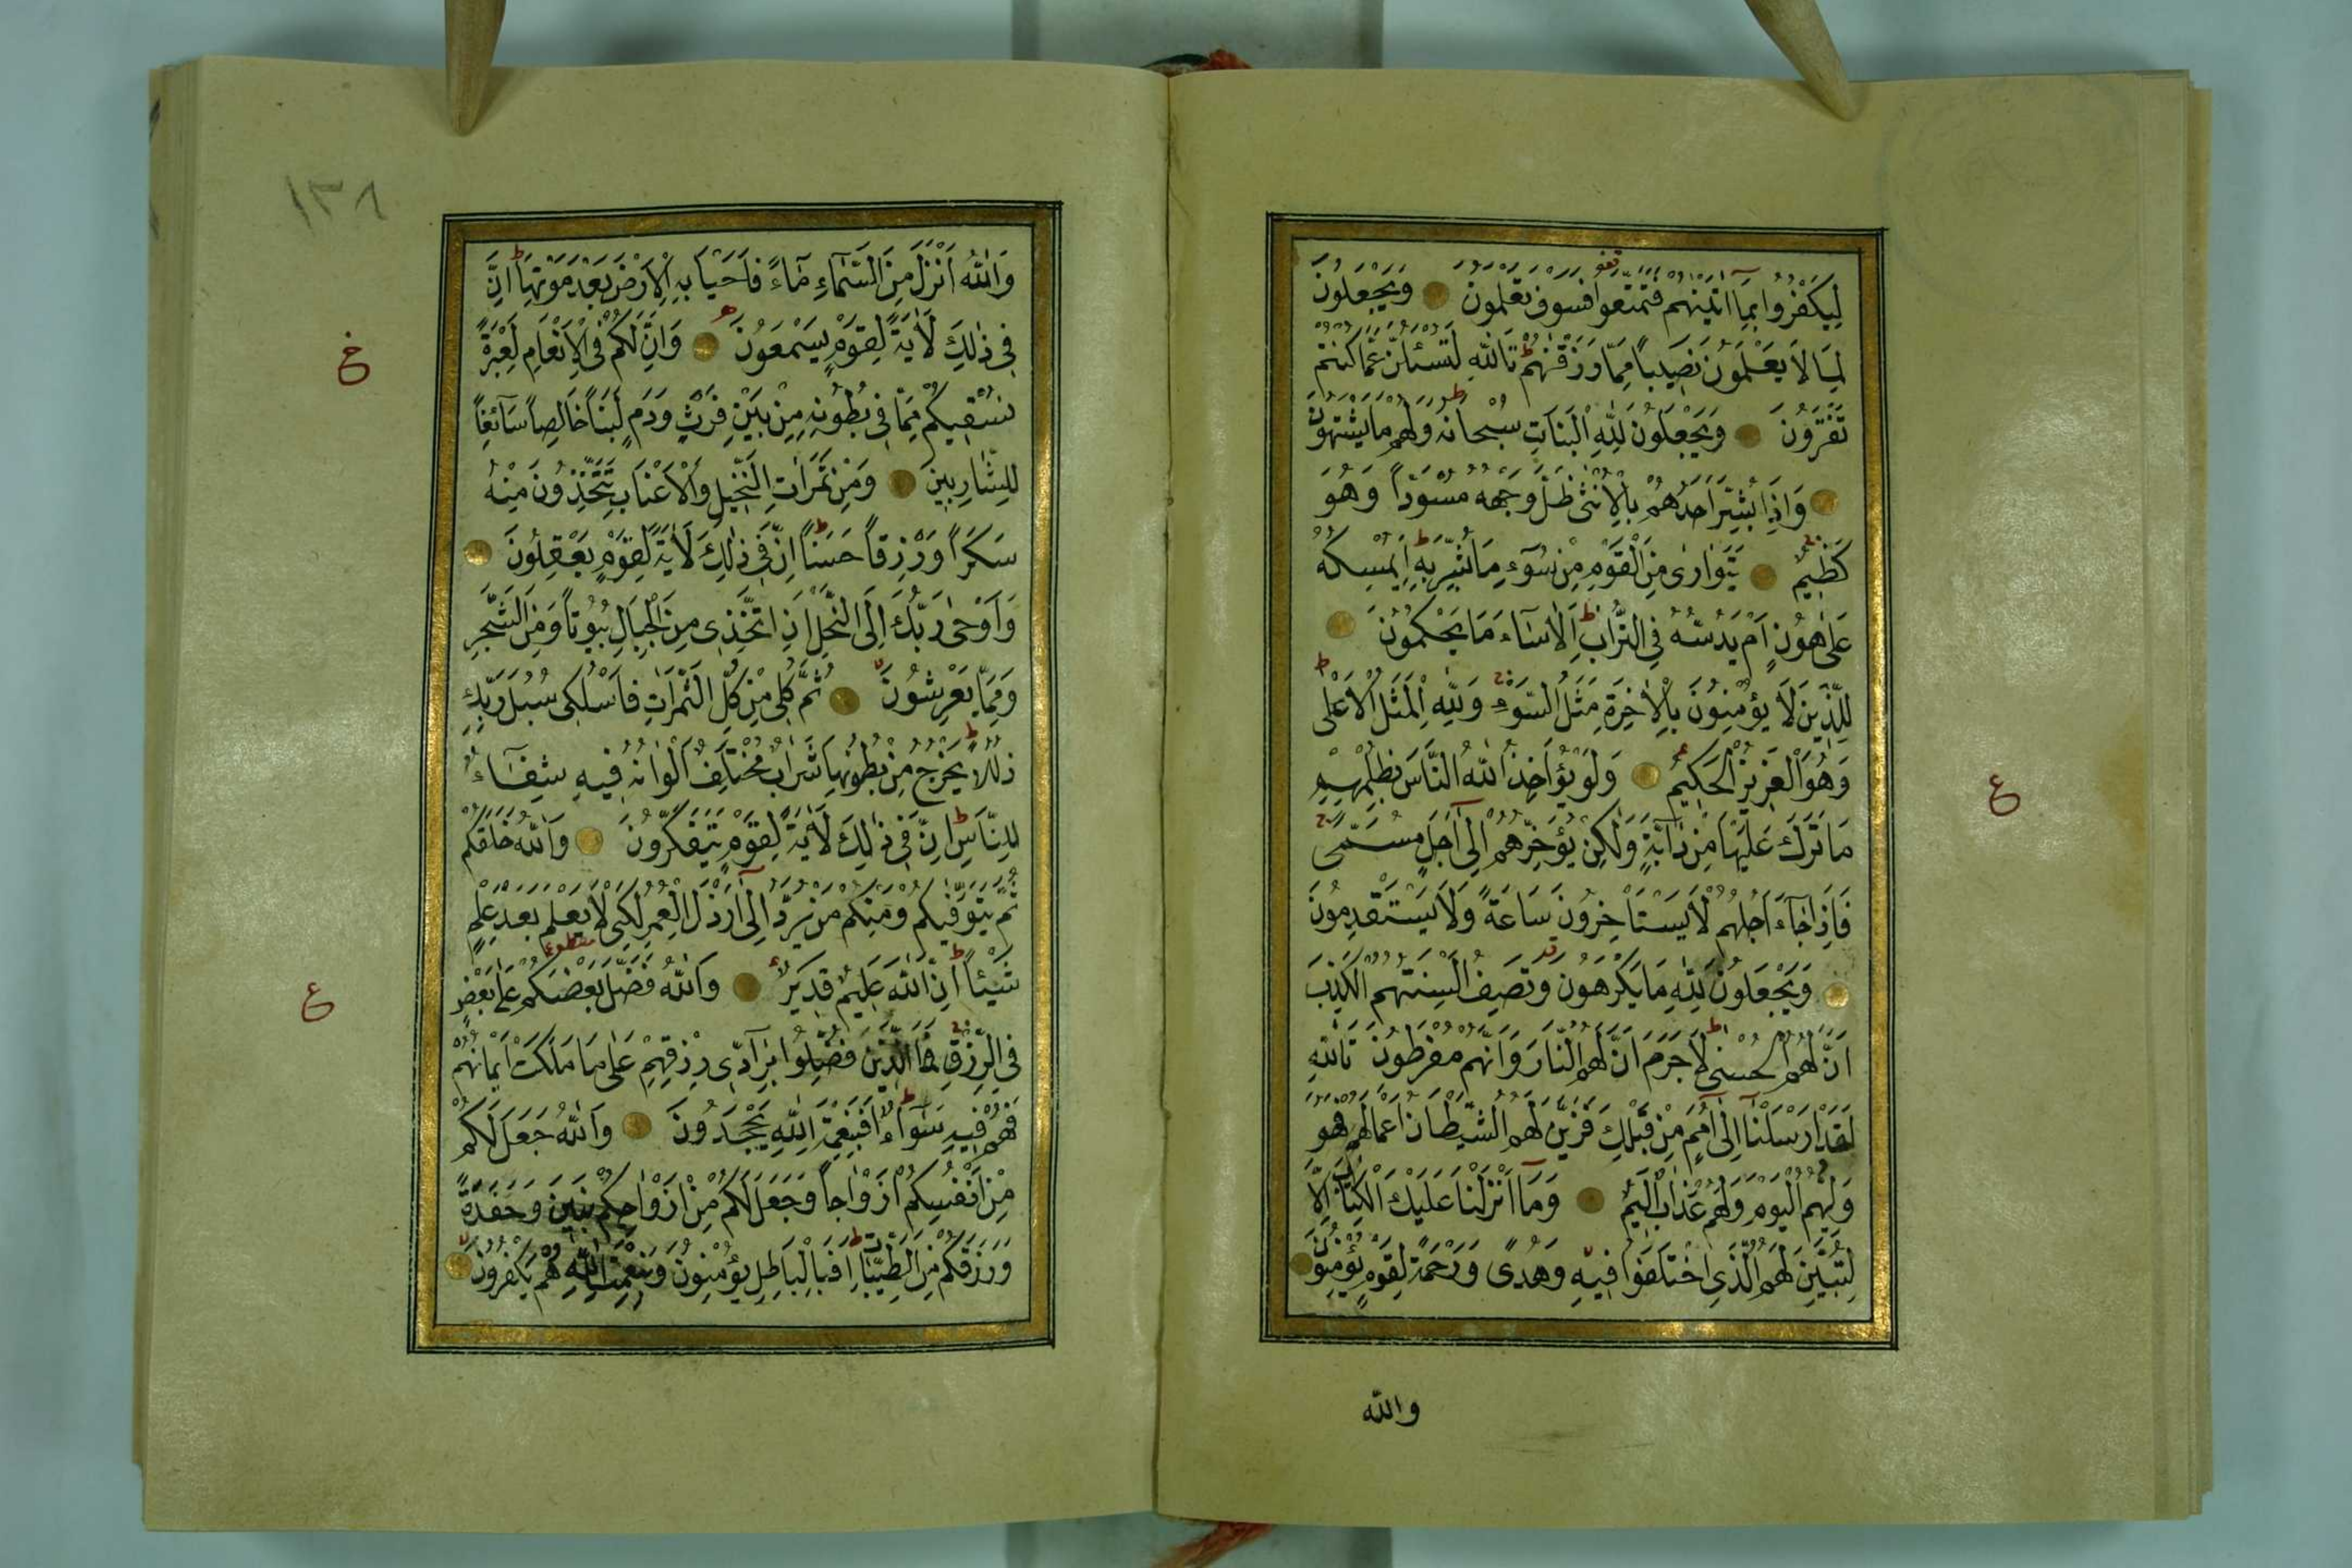 لِيَكْفُرُوا بِمَا اٰتَيْنٰهُمْ فَتَمَتَّعُوا فَسَوْفَ تَعْلَمُونَ وَيَجْعَلُونَ
لِمَا لَا يَعْلَمُونَ نَصِيبًا مِمَّا رَزَقْنٰهُمْ تَاللّٰهِ لَتُسْئَلُنَّ عَمَّا كُنْتُمْ
تَفْتَرُونَ وَيَجْعَلُونَ لِلّٰهِ الْبَنَاتِ سُبْحَانَهُ وَلَهُمْ مَا يَشْتَهُونَ
وَاِذَا بُشِّرَ اَحَدُهُمْ بِالْاُنْثٰى ظَلَّ وَجْهُهُ مُسْوَدًّا وَهُوَ
كَظِيمٌ يَتَوَارٰى مِنَ الْقَوْمِ مِنْ سُوٓءِ مَا بُشِّرَ بِهِ اَيُمْسِكُهُ
عَلٰى هُونٍ اَمْ يَدُسُّهُ فِي التُّرَابِ اَلَا سَاءَ مَا يَحْكُمُونَ
لِلَّذِينَ لَا يُؤْمِنُونَ بِالْاٰخِرَةِ مَثَلُ السَّوْءِ وَلِلّٰهِ الْمَثَلُ الْاَعْلٰى
وَهُوَ الْعَزِيزُ الْحَكِيمُ وَلَوْ يُؤَاخِذُ اللّٰهُ النَّاسَ بِظُلْمِهِمْ
ع
مَا تَرَكَ عَلَيْهَا مِنْ دَابَّةٍ وَلٰكِنْ يُؤَخِّرُهُمْ اِلٰى اَجَلٍ مُسَمًّى
فَاِذَا جَاءَ اَجَلُهُمْ لَا يَسْتَأْخِرُونَ سَاعَةً وَلَا يَسْتَقْدِمُونَ
وَيَجْعَلُونَ لِلّٰهِ مَا يَكْرَهُونَ وَتَصِفُ اَلْسِنَتُهُمُ الْكَذِبَ
اَنَّ لَهُمُ الْحُسْنٰى لَا جَرَمَ اَنَّ لَهُمُ النَّارَ وَاَنَّهُمْ مُفْرَطُونَ تَاللّٰهِ
لَقَدْ اَرْسَلْنَا اِلٰى اُمَمٍ مِنْ قَبْلِكَ فَزَيَّنَ لَهُمُ الشَّيْطَانُ اَعْمَالَهُمْ فَهُوَ
وَلِيُّهُمُ الْيَوْمَ وَلَهُمْ عَذَابٌ اَلِيمٌ وَمَا اَنْزَلْنَا عَلَيْكَ الْكِتَابَ اِلَّا
لِتُبَيِّنَ لَهُمُ الَّذِي اخْتَلَفُوا فِيهِ وَهُدًى وَرَحْمَةً لِقَوْمٍ يُؤْمِنُونَ
والله
١٣٨
وَاللّٰهُ اَنْزَلَ مِنَ السَّمَاءِ مَاءً فَاَحْيَا بِهِ الْاَرْضَ بَعْدَ مَوْتِهَا اِنَّ
فِي ذٰلِكَ لَاٰيَةً لِقَوْمٍ يَسْمَعُونَ وَاِنَّ لَكُمْ فِي الْاَنْعَامِ لَعِبْرَةً
نُسْقِيكُمْ مِمَّا فِي بُطُونِهِ مِنْ بَيْنِ فَرْثٍ وَدَمٍ لَبَنًا خَالِصًا سَائِغًا
لِلشَّارِبِينَ وَمِنْ ثَمَرَاتِ النَّخِيلِ وَالْاَعْنَابِ تَتَّخِذُونَ مِنْهُ
سَكَرًا وَرِزْقًا حَسَنًا اِنَّ فِي ذٰلِكَ لَاٰيَةً لِقَوْمٍ يَعْقِلُونَ
وَاَوْحٰى رَبُّكَ اِلَى النَّحْلِ اَنِ اتَّخِذِي مِنَ الْجِبَالِ بُيُوتًا وَمِنَ الشَّجَرِ
وَمِمَّا يَعْرِشُونَ ثُمَّ كُلِي مِنْ كُلِّ الثَّمَرَاتِ فَاسْلُكِي سُبُلَ رَبِّكِ
ذُلُلًا يَخْرُجُ مِنْ بُطُونِهَا شَرَابٌ مُخْتَلِفٌ اَلْوَانُهُ فِيهِ شِفَاءٌ
لِلنَّاسِ اِنَّ فِي ذٰلِكَ لَاٰيَةً لِقَوْمٍ يَتَفَكَّرُونَ وَاللّٰهُ خَلَقَكُمْ
ثُمَّ يَتَوَفّٰيكُمْ وَمِنْكُمْ مَنْ يُرَدُّ اِلٰى اَرْذَلِ الْعُمُرِ لِكَيْ لَا يَعْلَمَ بَعْدَ عِلْمٍ
شَيْئًا اِنَّ اللّٰهَ عَلِيمٌ قَدِيرٌ وَاللّٰهُ فَضَّلَ بَعْضَكُمْ عَلٰى بَعْضٍ
ع
فِي الرِّزْقِ فَمَا الَّذِينَ فُضِّلُوا بِرَادِّي رِزْقِهِمْ عَلٰى مَا مَلَكَتْ اَيْمَانُهُمْ
فَهُمْ فِيهِ سَوَاءٌ اَفَبِنِعْمَةِ اللّٰهِ يَجْحَدُونَ وَاللّٰهُ جَعَلَ لَكُمْ
مِنْ اَنْفُسِكُمْ اَزْوَاجًا وَجَعَلَ لَكُمْ مِنْ اَزْوَاجِكُمْ بَنِينَ وَحَفَدَةً
وَرَزَقَكُمْ مِنَ الطَّيِّبَاتِ اَفَبِالْبَاطِلِ يُؤْمِنُونَ وَبِنِعْمَتِ اللّٰهِ هُمْ يَكْفُرُونَ